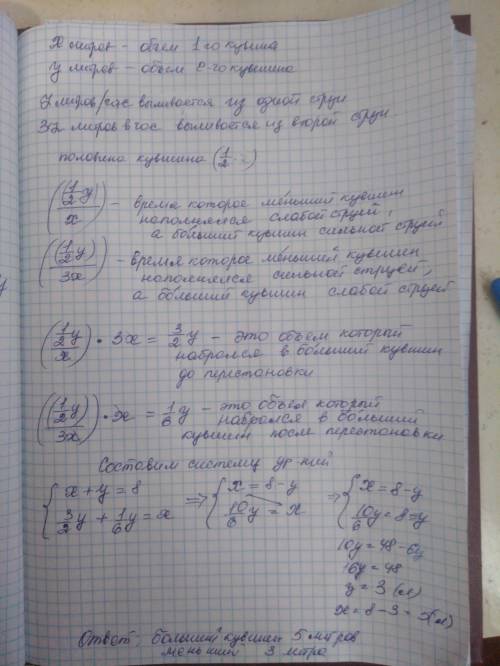 x литров - объем 1-го кувшина
y литров - объем 2-го кувшина
z литров/час выливается из одной струи
3z литров в час выливается из второй струи
половина кувшина (1/2
((1/2 y)/x) - время которое меньший кувшин
наполнялся слабой струей,
а больший кувшин сильной струей
((1/2 y)/3x) - время которое меньший кувшин
наполнялся сильной струей,
а больший кувшин слабой струей
((1/2 y)/x) • 3x = 3/2 y - это объем который
набрался в больший кувшин
до перестановки
((1/2 y)/3x) • x = 1/6 y - это объем который
набрался в больший
кувшин после перестановки
Составим систему ур-ний
{ x + y = 8 => { x = 8 - y => { x = 8 - y
{ 3/2 y + 1/6 y = x { 10/6 y = x { 10/6 y = 8 - y
10y = 48 - 6y
16y = 48
y = 3 (л)
x = 8 - 3 = 5 (л)
Ответ: больший кувшин 5 литров
меньший 3 литра